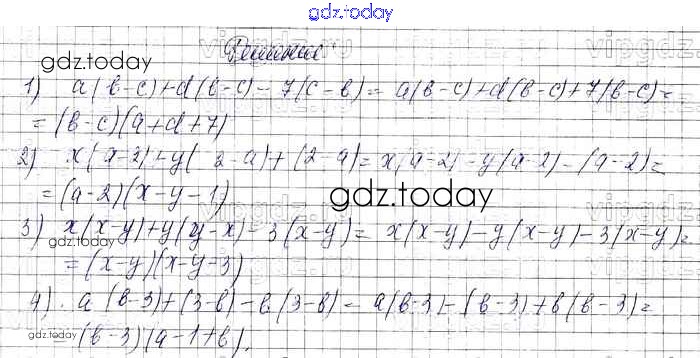 gdz.today
Решение
gdz.today
1) a(b-c)+d(b-c)-7(c-b)= a(b-c)+d(b-c)+7(b-c)=
=(b-c)(a+d+7)
2) x(a-2)+y(2-a)+(2-a)=x(a-2)-y(a-2)-(a-2)=
=(a-2)(x-y-1)
gdz.today
3) x(x-y)+y(y-x)-3(x-y)= x(x-y)-y(x-y)-3(x-y)=
gdz.today
=(x-y)(x-y-3)
4). a(b-3)+(3-b)-b(3-b)= a(b-3)-(b-3)+b(b-3)=
gdz.today
(b-3)(a-1+b).